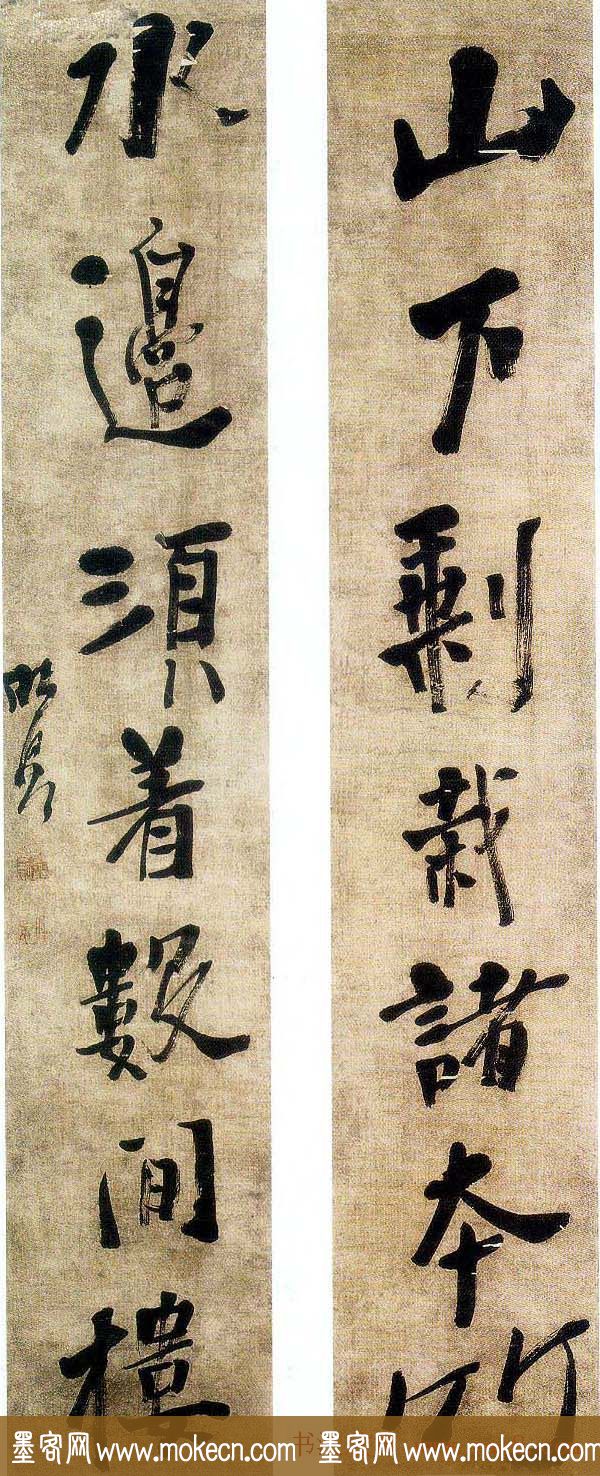 山下剩栽諸本竹
水邊須着數間樓
墨客网www.mokecn.com 书 墨客网www.mokecn.com